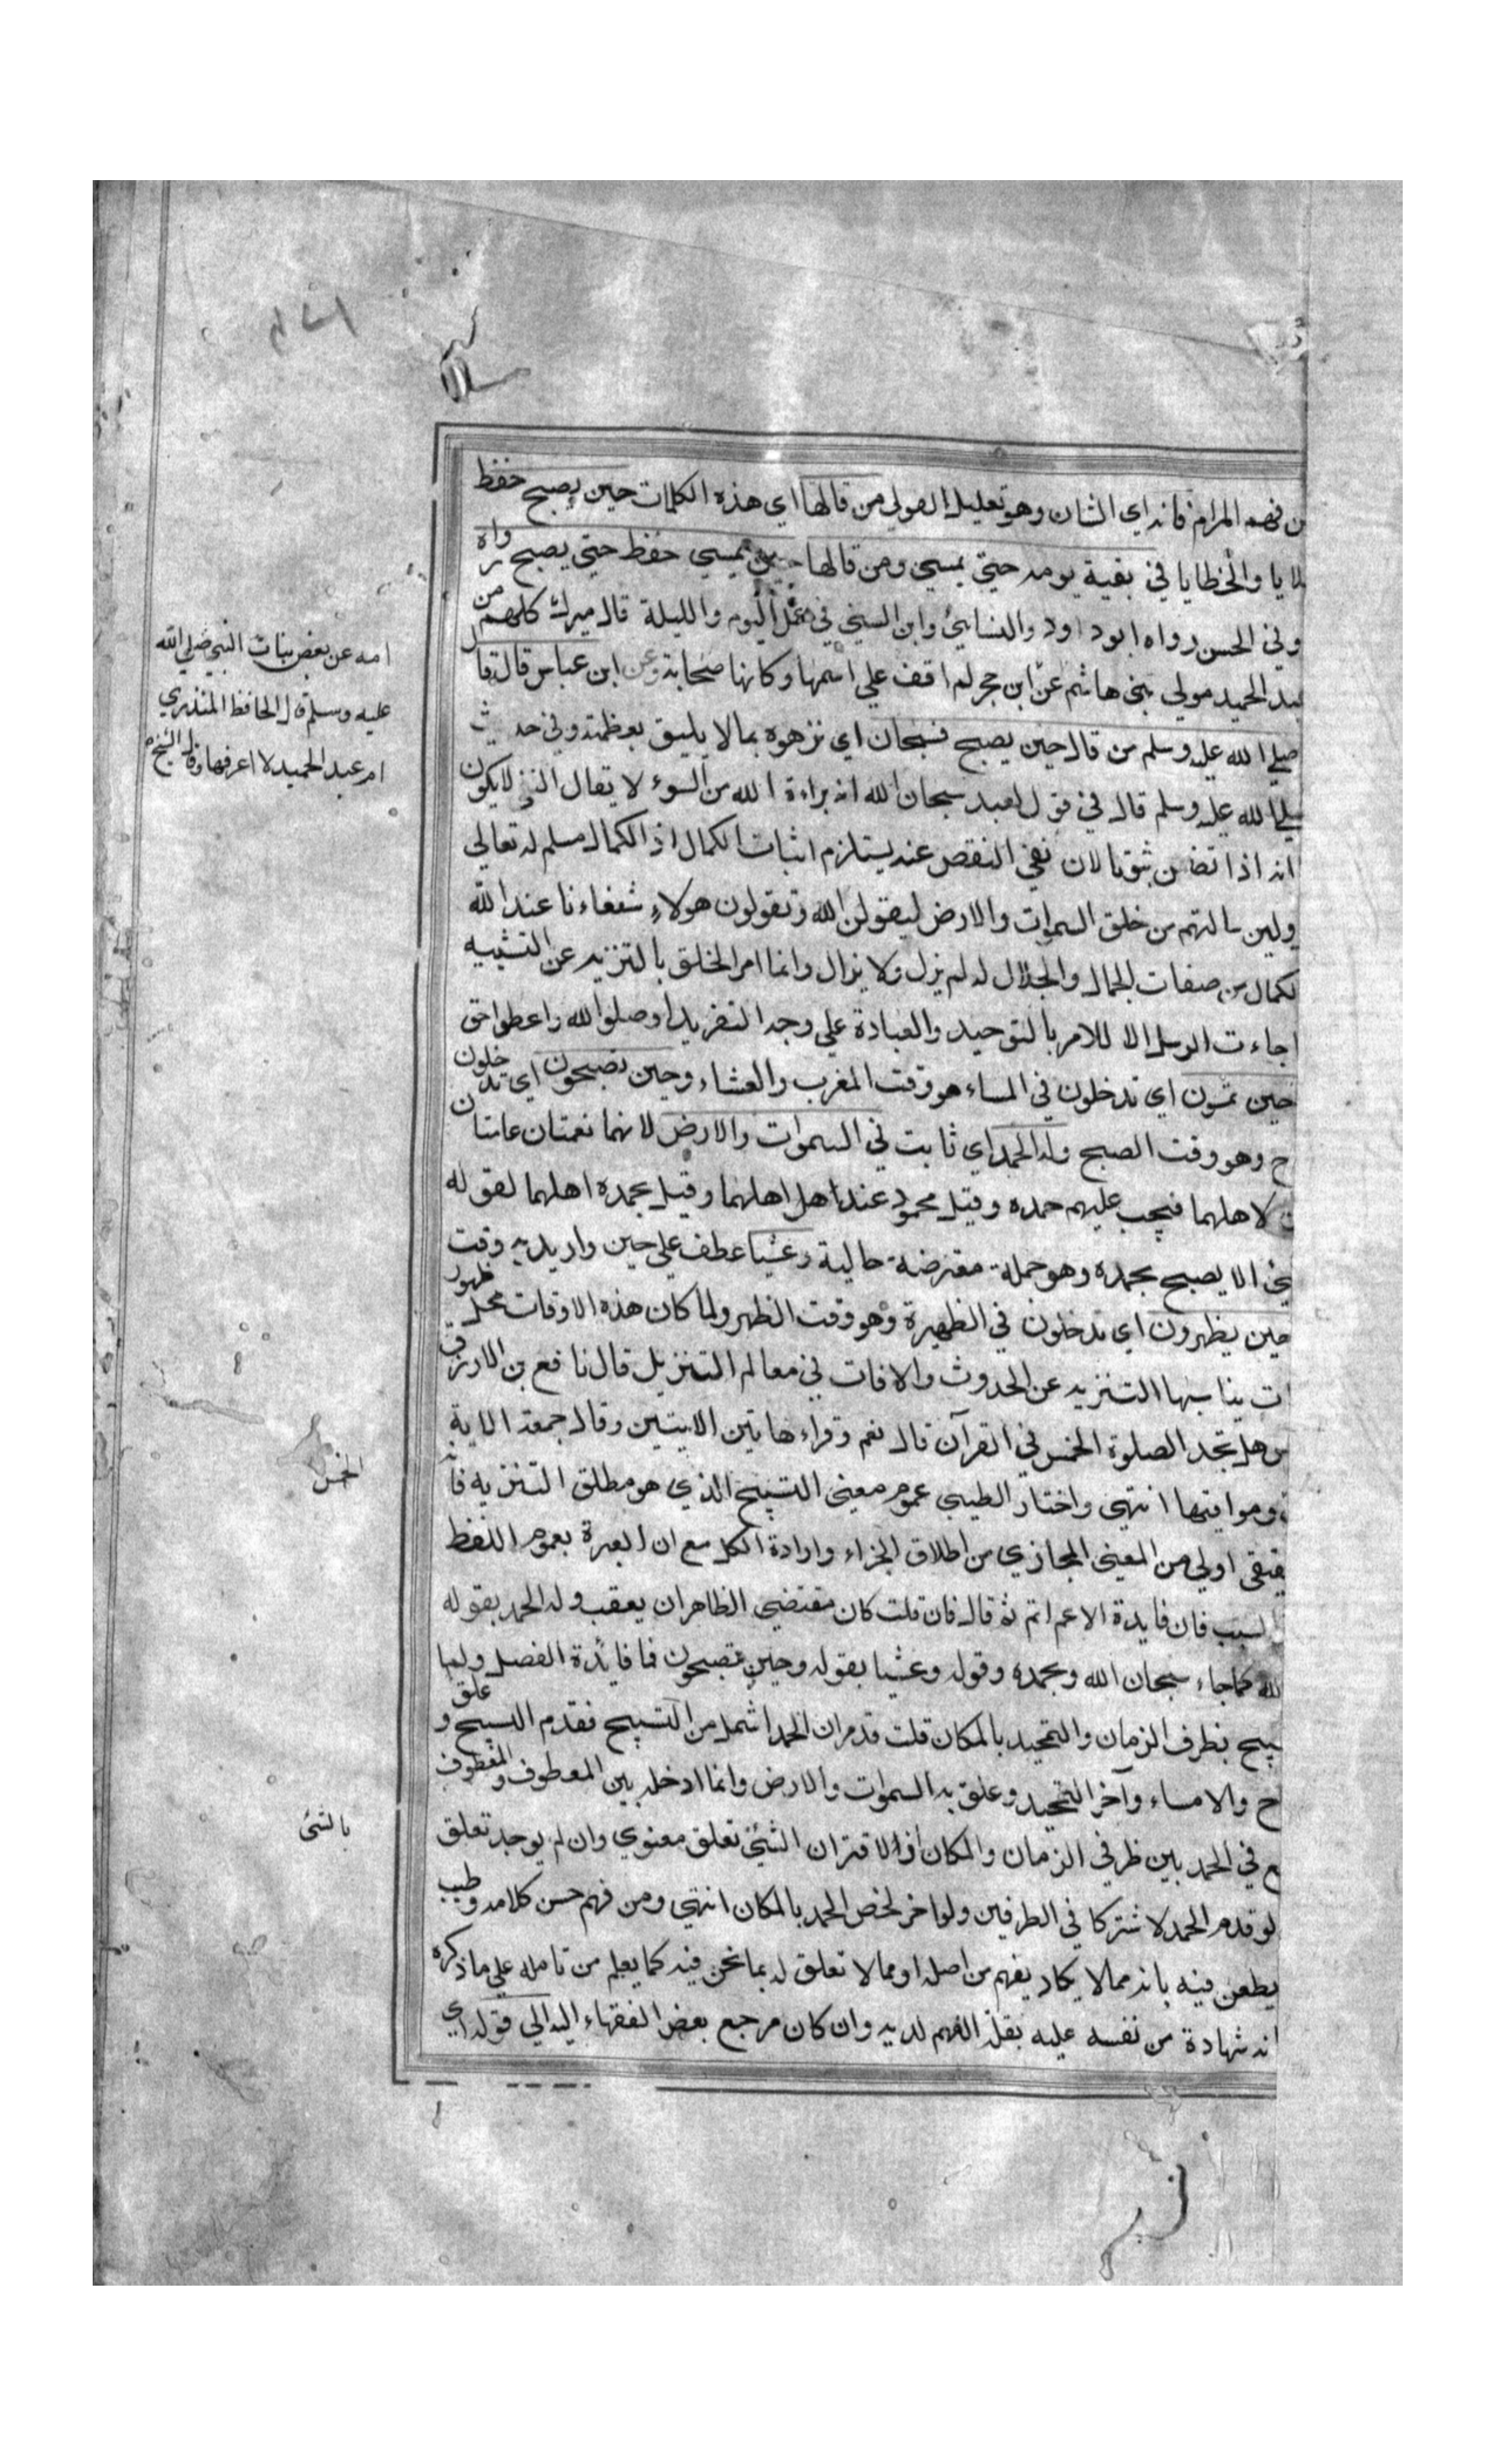 فهم المرام فانه اي الشان وهو تعليل لقولي من قالها اي هذه الكلمات حين يصبح حفظ
والخطايا في بقية يومه حتي يمسي ومن قالها حين يمسي حفظ حتي يصبح رواه
وفي الحسن رواه ابوداود والنسائي وابن السني في عمل اليوم والليلة قال ميرك كلهم من
عبد الحميد مولي بني هاشم عن ابن حجر لم اقف علي اسمها وكانها صحابية وعن ابن عباس قال قال
صلي الله عليه وسلم من قال حين يصبح فسبحان اي نزهوه بما لا يليق بعظمته وفي حديث
صلي الله عليه وسلم قال في قول العبد سبحان الله انه براءة الله من السوء لا يقال النفي لا يكون
انه اذا تضمن ثبوتا لان نفي النقص عنه يستلزم اثبات الكمال اذ الكمال مسلم له تعالي
ولين سالتهم من خلق السموات والارض ليقولن الله وتقولون هولاء شفعاءنا عند الله
لكمال من صفات الجمال والجلال له لم يزل ولا يزال وانما امر الخلق بالتنزيه عن التشبيه
جاءت الرسل الا للامر بالتوحيد والعبادة علي وجه التفريد اوصلوا لله واعطوا حق
حين تمسون اي تدخلون في المساء هو وقت المغرب والعشاء وحين تصبحون اي تدخلون
ح وهو وقت الصبح وله الحمد اي ثابت في السموات والارض لانهما نعمتان عامتان
لاهلهما فيجب عليهم حمده وقيل محمود عند اهل اهلهما وقيل بحمده اهلهما لقوله
الا يصبح بحمده وهو جملة معترضة حالية وعشيا عطف علي حين واريد به وقت
حين يظهرون اي تدخلون في الظهيرة وهو وقت الظهر ولما كان هذه الاوقات محل ظهور
ات يناسبها التنزيه عن الحدوث والافات في معالم التنزيل قال نافع بن الازرق
س هل تجد الصلوة الخمس في القرآن قال نعم وقراء هاتين الايتين وقال جمعة الاية
ومواقيتها انتهي واختار الطيبي عموم معني التسبيح الذي هو مطلق التنزيه فانه
حقيقي اولي من المعني المجازي من اطلاق الجزاء وارادة الكل مع ان العبرة بعموم اللفظ
السبب فان فايدة الاعم اتم ثم قال فان قلت كان مقتضي الظاهر ان يعقب وله الحمد بقوله
الله كما جاء سبحان الله وبحمده وقوله وعشيا بقوله وحين تصبحون فما فايدة الفصل ولما
بيح بظرف الزمان والتحميد بالمكان قلت قدم ان الحمد اشمل من التسبيح فقدم التسبيح وعلق
ح والامساء وآخر التحميد وعلق به السموات والارض وانما ادخله بين المعطوف والمعطوف
ع في الحمد بين ظرفي الزمان والمكان اذ الاقتران الشئ تعلق معنوي وان لم يوجد تعلق
لو قدم الحمد لاشتركا في الظرفين ولو اخر لخص الحمد بالمكان انتهي ومن فهم حسن كلامه وطيب
يطعن فيه بانه مما لا يكاد يفهم من اصله او مما لا تعلق له بما نحن فيه كما يعلم من تامله علي ما ذكره
انه شهادة من نفسه عليه بقلة الفهم لديه وان كان مرجع بعض الفقهاء اليه الي قوله اي
امه عن بعض بنات النبي صلي الله
عليه وسلم قال الحافظ المنذري
ام عبد الحميد لا اعرفها وقال الشيخ
الخمس
بالشئ